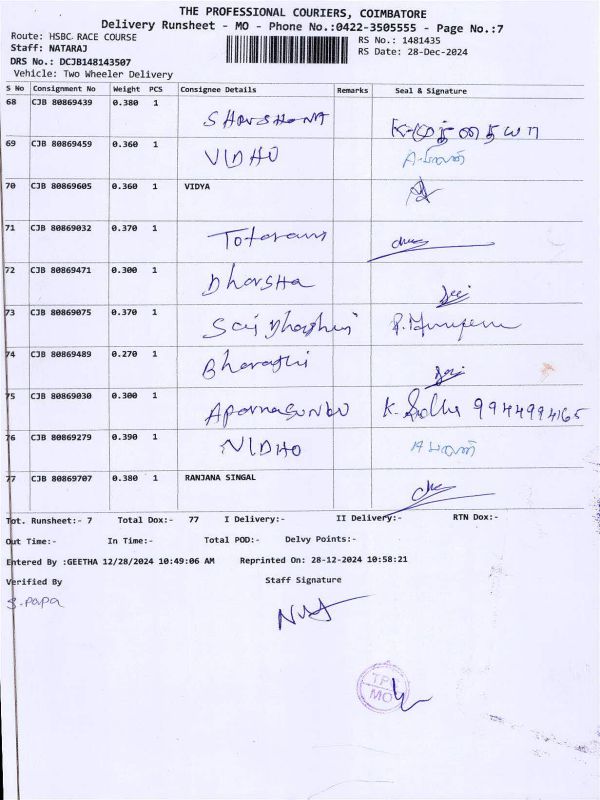 THE PROFESSIONAL COURIERS, COIMBATORE
Delivery Runsheet - MO - Phone No.:0422-3505555 - Page No.:7
Route: HSBC RACE COURSE RS No.: 1481435
Staff: NATARAJ RS Date: 28-Dec-2024
DRS No.: DCJB148143507
Vehicle: Two Wheeler Delivery
S No Consignment No Weight PCS Consignee Details Remarks Seal & Signature
68 CJB 80869439 0.380 1
69 CJB 80869459 0.360 1 VIDHU
70 CJB 80869605 0.360 1 VIDYA
71 CJB 80869032 0.370 1
72 CJB 80869471 0.300 1 Dharsha
73 CJB 80869075 0.370 1
74 CJB 80869489 0.270 1 Bharathi
75 CJB 80869030 0.300 1 9944994165
76 CJB 80869279 0.390 1
77 CJB 80869707 0.380 1 RANJANA SINGAL
Tot. Runsheet:- 7 Total Dox:- 77 I Delivery:- II Delivery:- RTN Dox:-
Out Time:- In Time:- Total POD:- Delvy Points:-
Entered By :GEETHA 12/28/2024 10:49:06 AM Reprinted On: 28-12-2024 10:58:21
Verified By Staff Signature
S. Papa
TP
MO